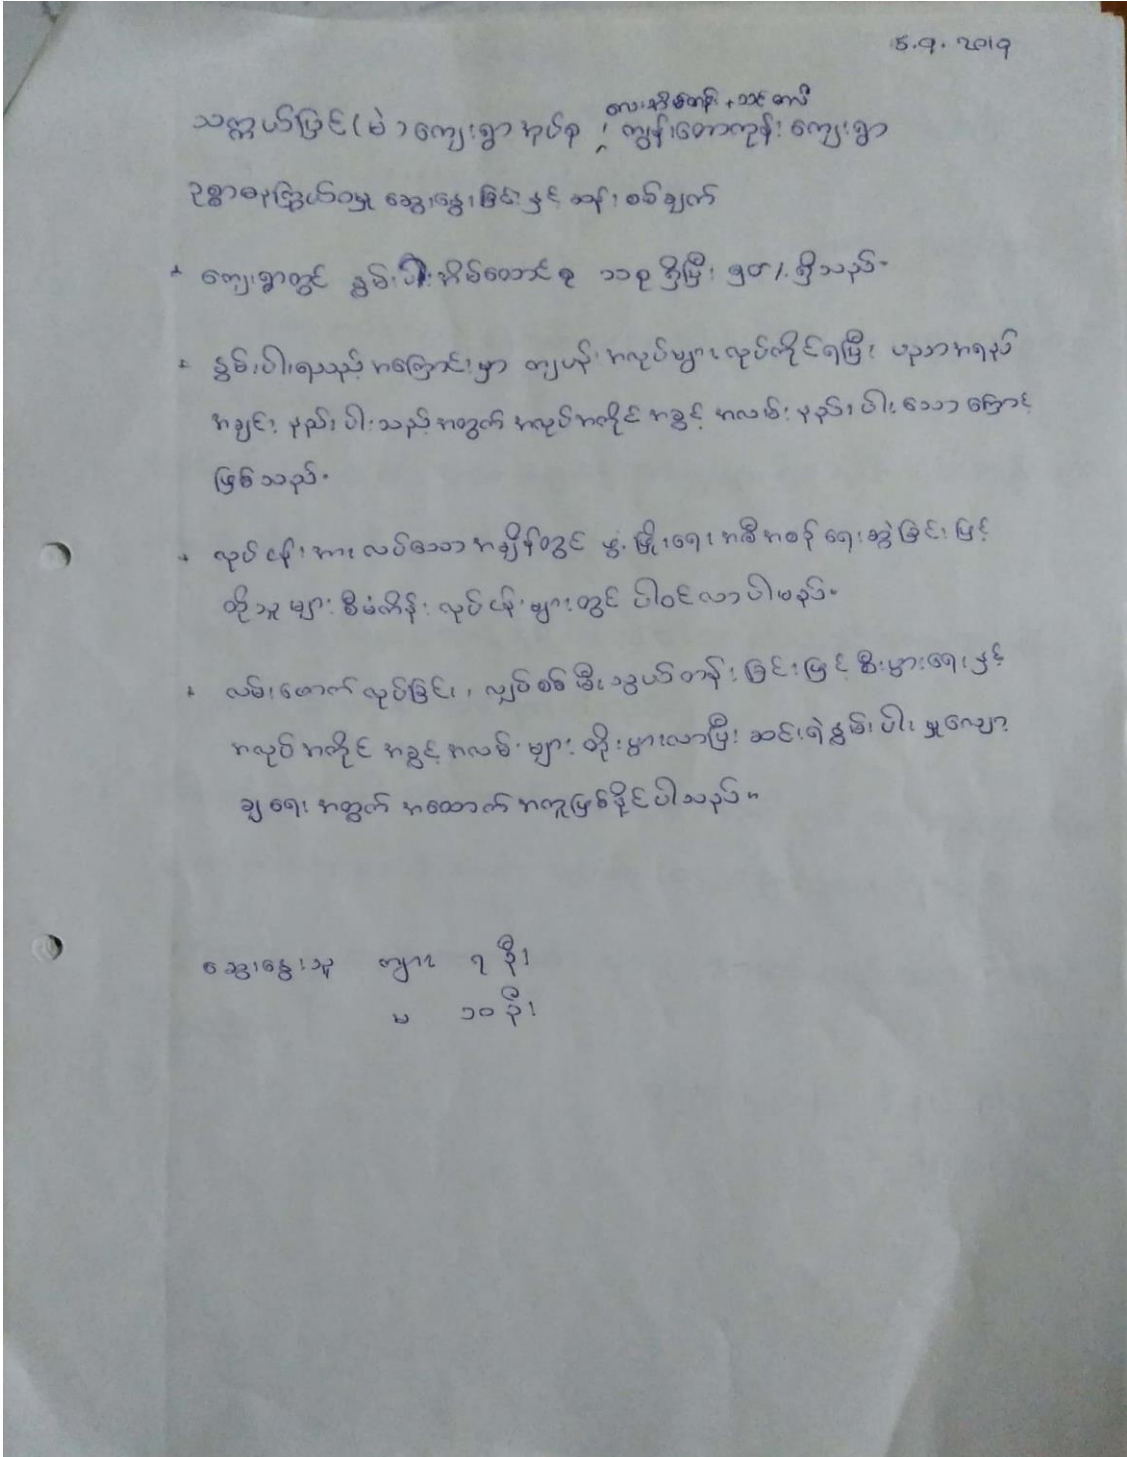 5.9.2019
လေးအိမ်တန်း + သင်္ဘောလီ
သက္ကယ်ပြင်(မဲ) ကျေးရွာအုပ်စု ၊ ကျွန်းတောကုန်း ကျေးရွာ
ဥစ္စာဓနကြွယ်ဝမှု ဆွေးနွေးခြင်းနှင့် ဆန်းစစ်ချက်
* ကျေးရွာတွင် နွမ်းပါးအိမ်ထောင်စု ၁၁စုရှိပြီး ၅၀% ရှိသည်။
* နွမ်းပါးရသည့် အကြောင်းမှာ ကျပန်းအလုပ်များ လုပ်ကိုင်ရပြီး ပညာအရည်
အချင်း နည်းပါးသည့်အတွက် အလုပ်အကိုင် အခွင့် အလမ်း နည်းပါးသောကြောင့်
ဖြစ်သည်။
* လုပ်ငန်းအားလပ်သောအချိန်တွင် ဖွံ့ဖြိုးရေး အစီအစဉ် ရေးဆွဲခြင်းဖြင့်
ထိုသူများ စီမံကိန်း လုပ်ငန်းများတွင် ပါဝင်လာပါမည်။
* လမ်းဖောက်လုပ်ခြင်း ၊ လျှပ်စစ်မီးသွယ်တန်းခြင်းဖြင့် စီးပွားရေးနှင့်
အလုပ်အကိုင် အခွင့်အလမ်းများ တိုးပွားလာပြီး ဆင်းရဲနွမ်းပါးမှုလျှော့
ချရေး အတွက် အထောက်အကူဖြစ်နိုင်ပါသည်။
ဆွေးနွေးသူ ကျား ၇ ဦး
မ ၁၀ဦး